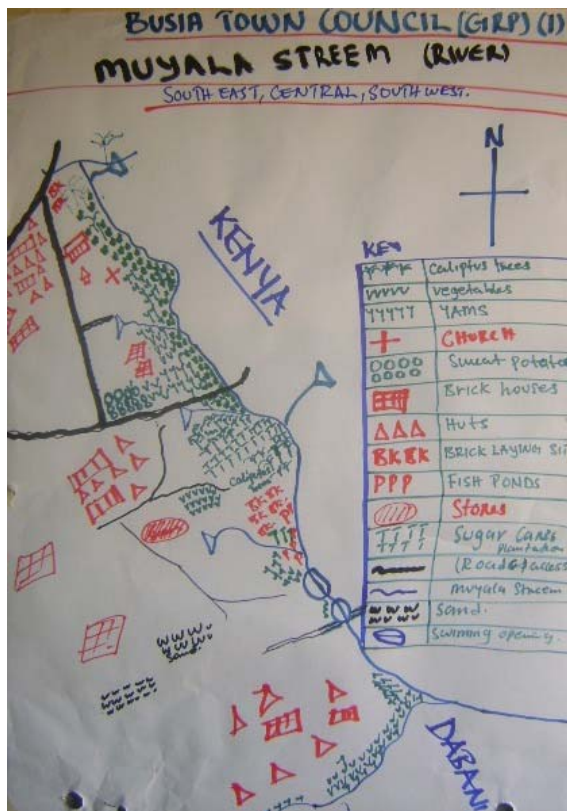 BUSIA TOWN COUNCIL (GIRP) (1)
MUYALA STREEM (RIVER)
SOUTH EAST, CENTRAL, SOUTH WEST.
N
KENYA
KEY
Caliptus trees
vegetables
YAMS
CHURCH
Sweat potato
Brick houses
HUTS
BKBK BRICK LAYING SI
PPP FISH PONDS
STORES
Sugar Canes
Plantation
(Road & access
muyala Streem
Sand.
Swiming opening.
BK
BK
Caliptus
trees
BK BK
BK BK
BK
Sand.
DABANI